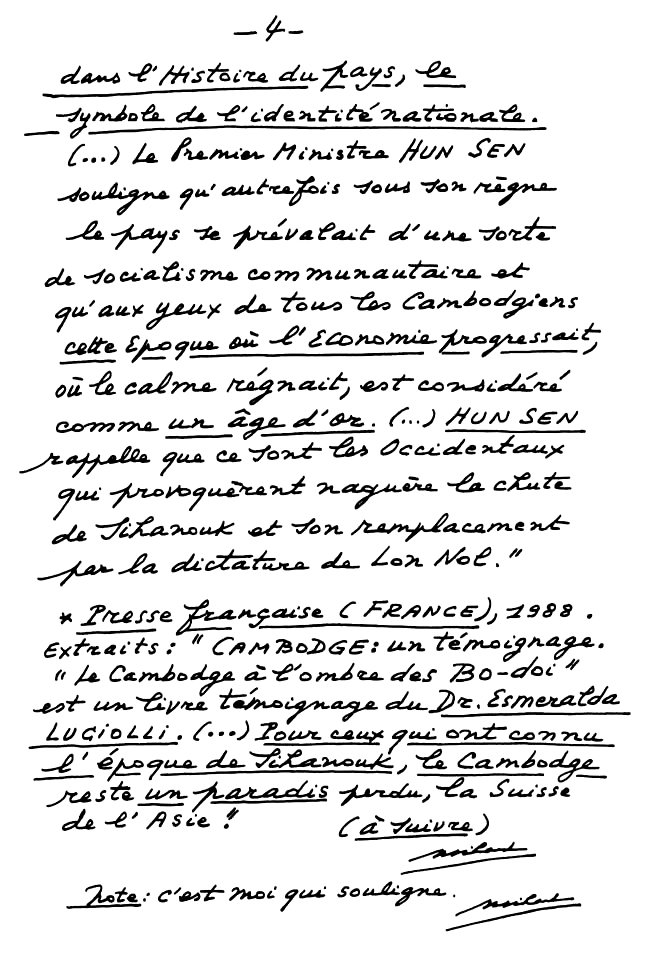 - 4 -
dans l'Histoire du pays, le
symbole de l'identité nationale.
(...) Le Premier Ministre HUN SEN
souligne qu'autrefois sous son règne
le pays se prévalait d'une sorte
de socialisme communautaire et
qu'aux yeux de tous les Cambodgiens
cette Epoque où l'Economie progressait,
où le calme régnait, est considéré
comme un âge d'or. (...) HUN SEN
rappelle que ce sont les Occidentaux
qui provoquèrent naguère la chute
de Sihanouk et son remplacement
par la dictature de Lon Nol."
* Presse française (FRANCE), 1988.
Extraits : "CAMBODGE : un témoignage.
"Le Cambodge à l'ombre des Bo-doi"
est un livre témoignage du Dr. Esmeralda
LUCIOLLI. (...) Pour ceux qui ont connu
l'époque de Sihanouk, le Cambodge
reste un paradis perdu, la Suisse
de l'Asie".
(à suivre)
Note : c'est moi qui souligne.